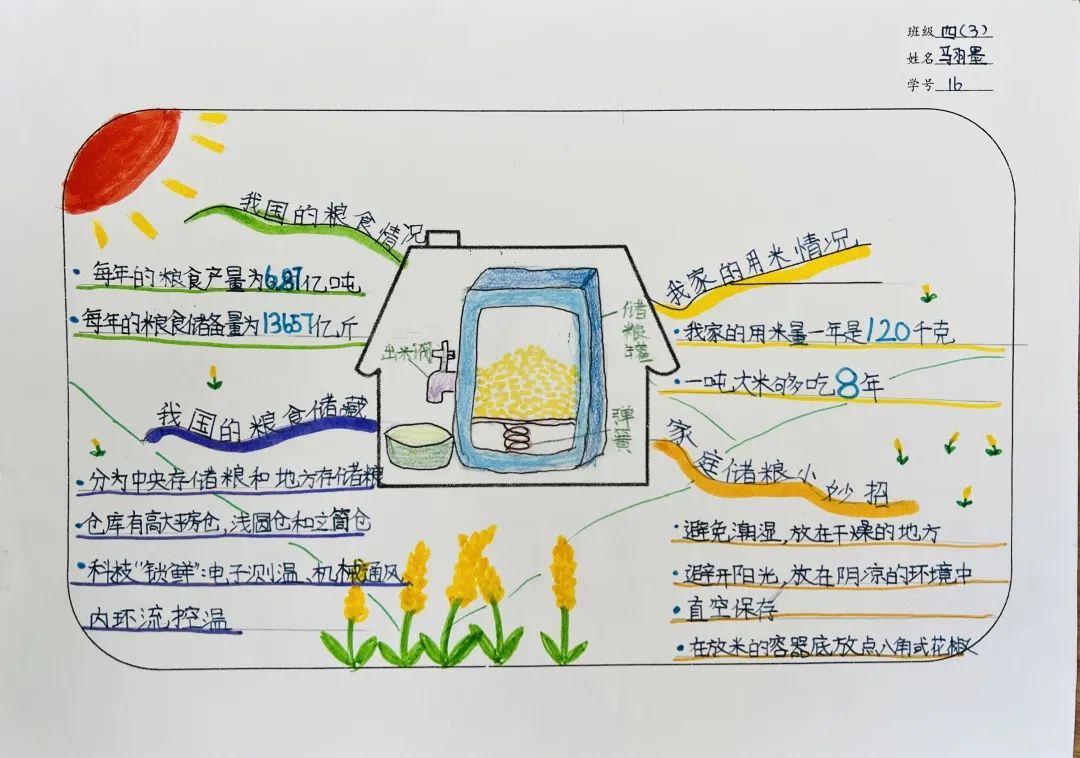 班级 四(3)
姓名 马羽墨
学号 16
我国的粮食情况
·每年的粮食产量为6.87亿吨
·每年的粮食储备量为13657亿斤
我国的粮食储藏
·分为中央存储粮和地方存储粮
·仓库有高大平房仓,浅圆仓和立筒仓
·科技“锁鲜”:电子测温、机械通风
内环流控温
出米阀
储粮罐
弹簧
我家的用米情况
·我家的用米量一年是120千克
·一吨大米够吃8年
家庭储粮小妙招
·避免潮湿,放在干燥的地方
·避开阳光,放在阴凉的环境中
·直空保存
·在放米的容器底放点八角或花椒